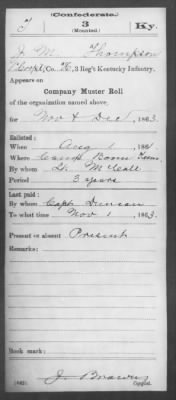 Confederate
3
(Mounted.)
T
Ky.
J. M. Thompson
Corpl, Co. K, 3 Reg't Kentucky Infantry.
Appears on
Company Muster Roll
of the organization named above,
for Nov & Dec, 1863.
Enlisted:
When Aug 1, 1861.
Where Camp Boone Tenn.
By whom Lt. McCall
Period 3 years
Last paid:
By whom Capt. Duncan
To what time Nov 1, 1863.
Present or absent Present
Remarks:
Book mark:
(642)
J.
Copyist.